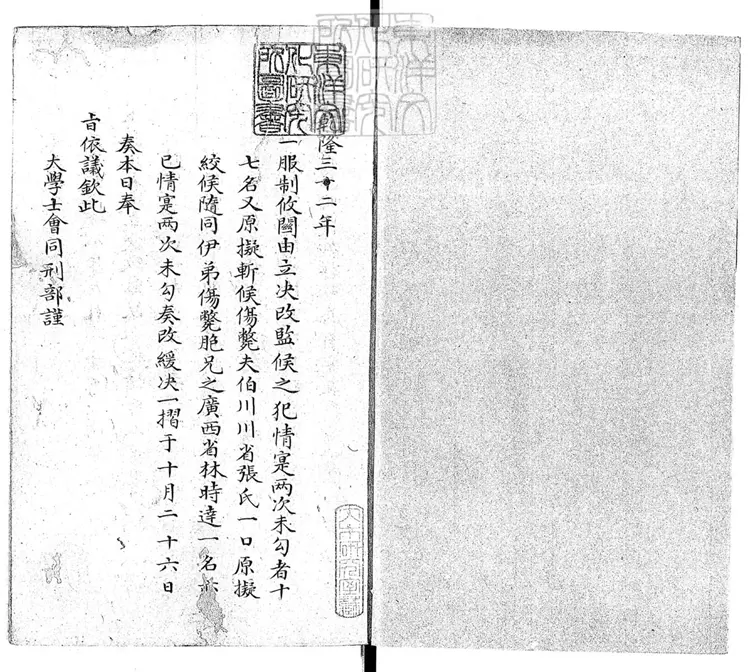 東洋文
化研究
所圖書
乾隆三十二年
一服制攸關由立决改監候之犯情寔两次未勾者十
七名又原擬斬候傷斃夫伯川川省張氏一口原擬
絞候隨同伊弟傷斃胞兄之廣西省林時逹一名亦
已情寔两次未勾奏改緩决一摺于十月二十六日
奏本日奉
旨依議欽此
大學士會同刑部謹